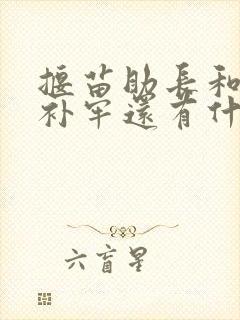 揠苗助长和
补牢还有什
六盲星